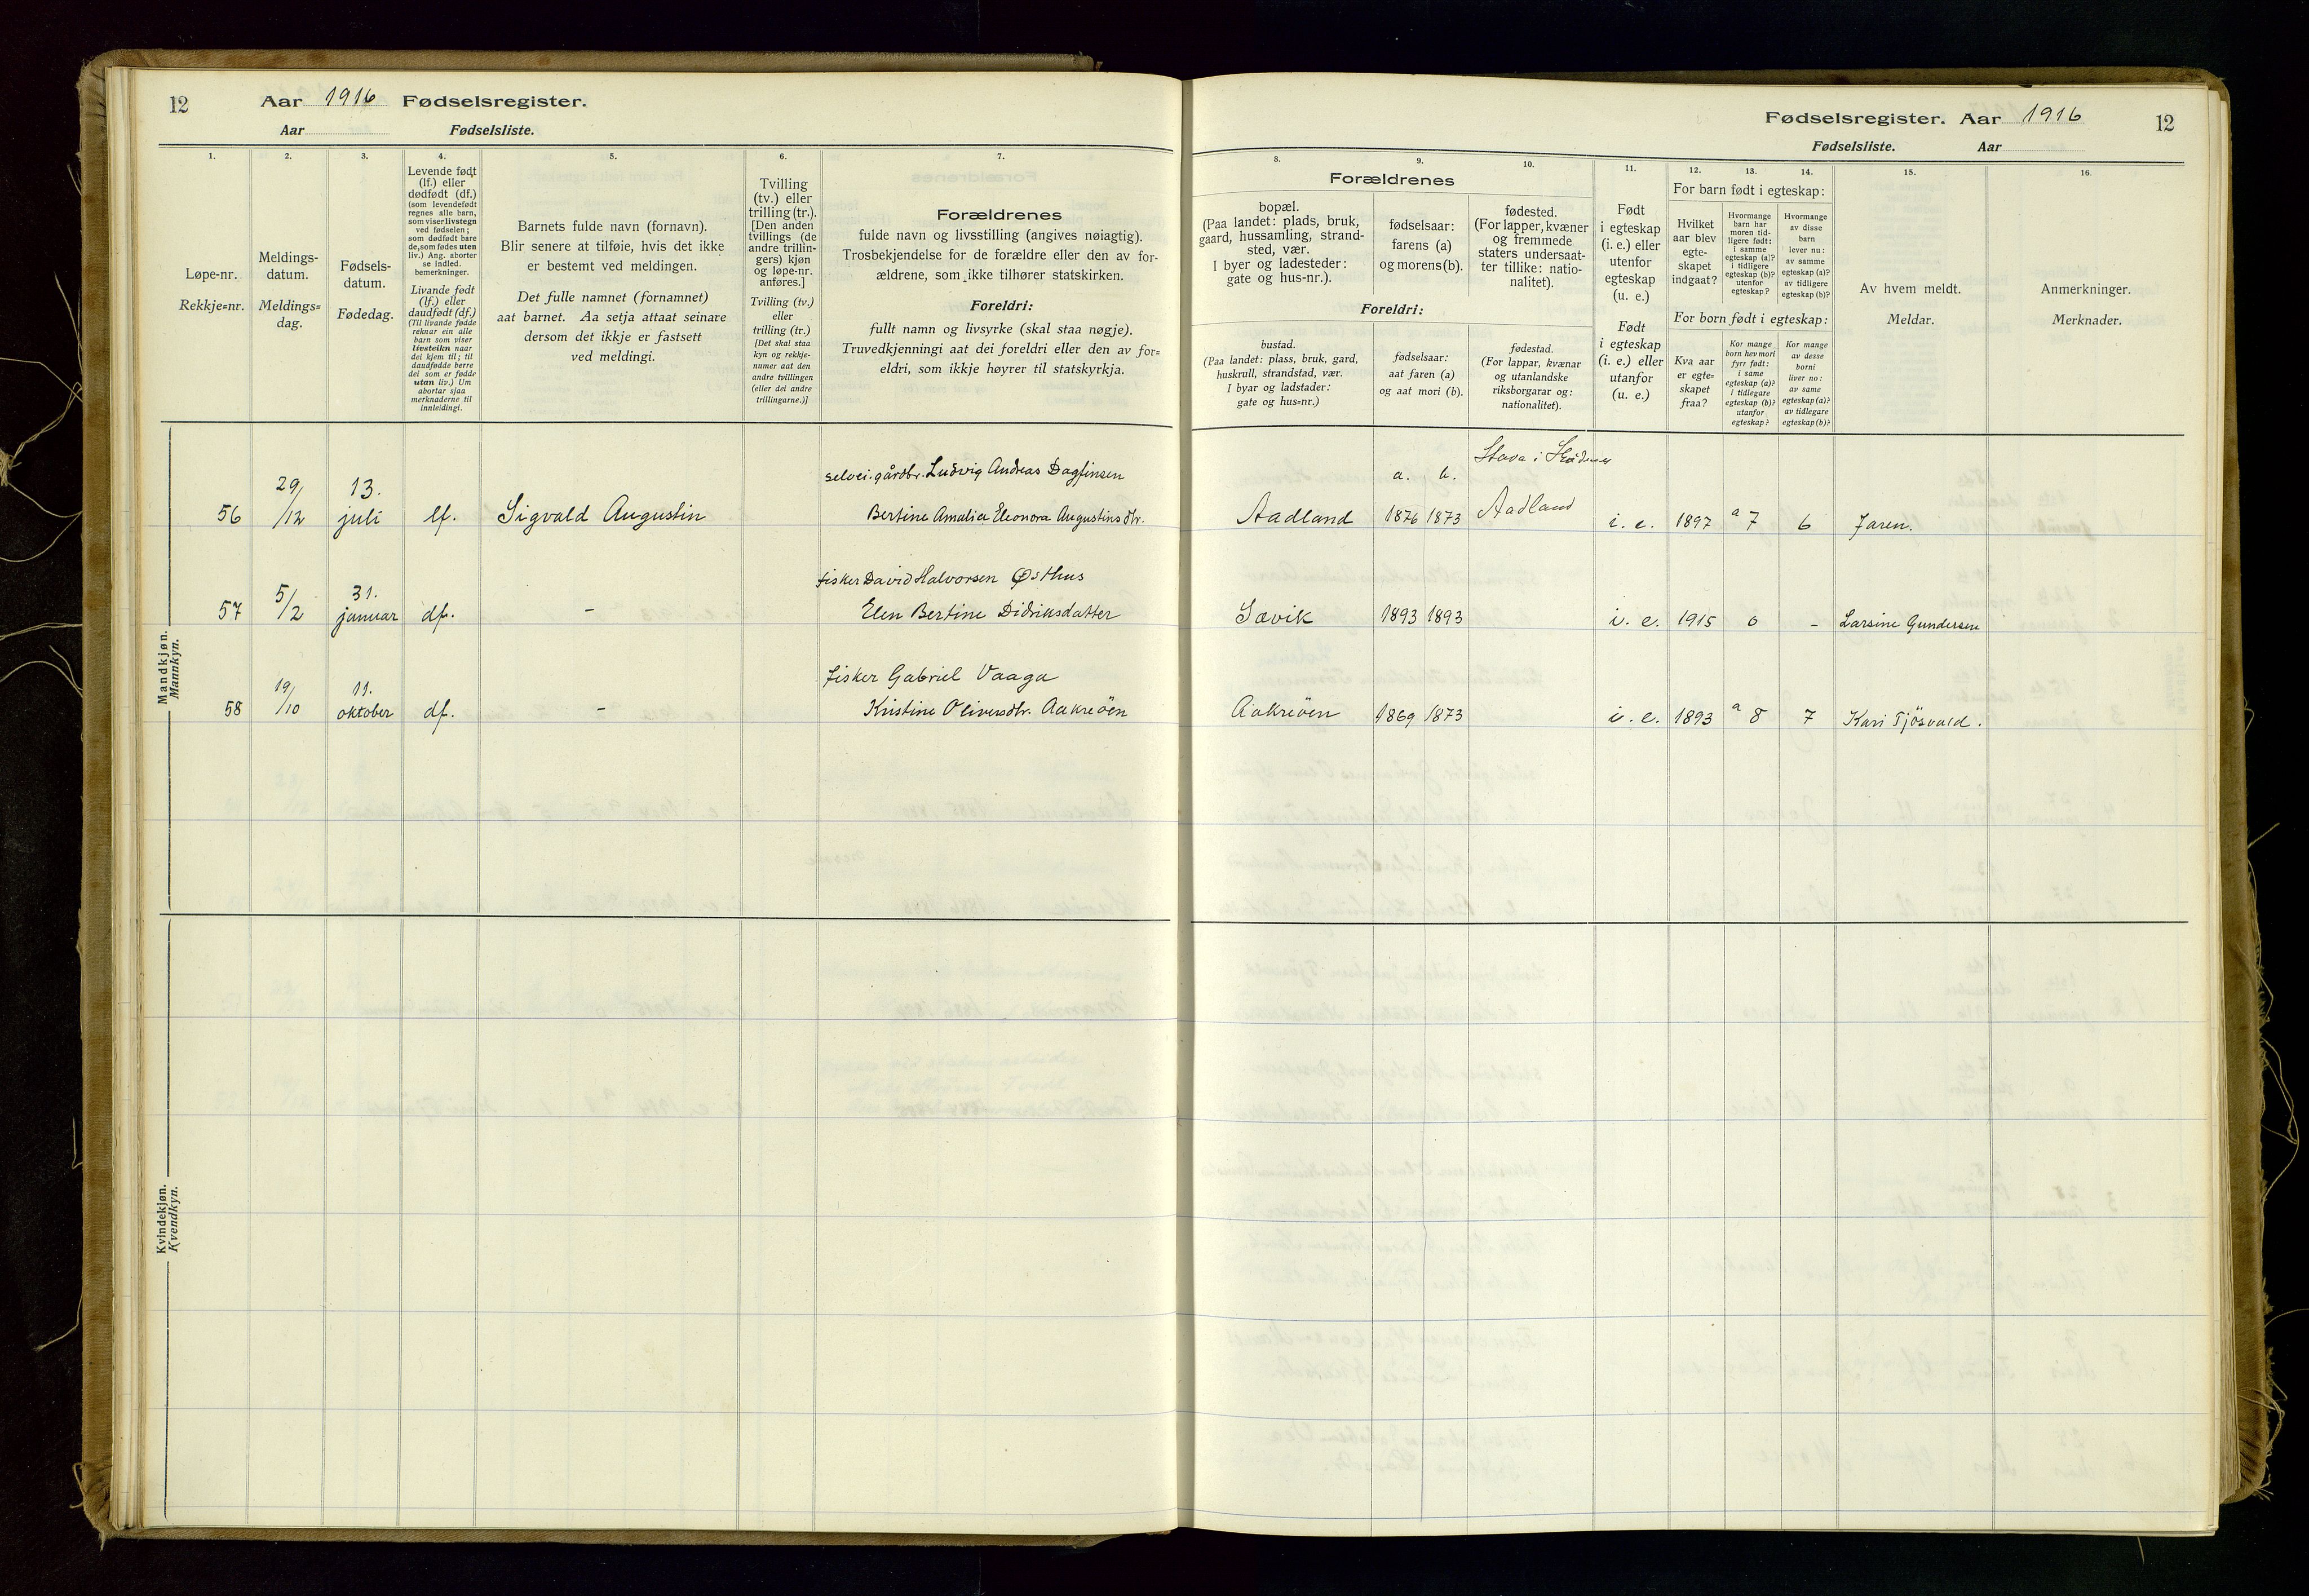 12
Aar 1916 Fødselsregister.
Aar Fødselsliste.
1.
2.
3.
4.
5.
6.
7.
Løpe-nr.
Rekkje=nr.
Meldings-
datum.
Meldings=
dag.
Fødsels-
datum.
Fødedag.
Levende født
(lf.) eller
dødfødt (df.)
(som levendefødt
regnes alle barn,
som viser livstegn
ved fødselen;
som dødfødt bare
de, som fødes uten
liv.) Ang. aborter
se indled.
bemerkninger.
Livande født
(lf.) eller
daudfødt (df.)
(Til livande fødde
reknar ein alle
barn som viser
livsteikn naar
dei kjem til; til
daudfødde berre
dei som er fødde
utan liv.) Um
abortar sjaa
merknaderne til
innleidingi.
Barnets fulde navn (fornavn).
Blir senere at tilføie, hvis det ikke
er bestemt ved meldingen.
Det fulle namnet (fornamnet)
aat barnet. Aa setja attaat seinare
dersom det ikkje er fastsett
ved meldingi.
Tvilling
(tv.) eller
trilling (tr.).
[Den anden
tvillings (de
andre trillin-
gers) kjøn
og løpe-nr.
anføres.]
Tvilling (tv.)
eller
trilling (tr.)
[Det skal staa
kyn og rekkje-
numer aat den
andre tvillingen
(eller dei andre
trillingarne.)]
Forældrenes
fulde navn og livsstilling (angives nøiagtig).
Trosbekjendelse for de forældre eller den av for-
ældrene, som ikke tilhører statskirken.
Foreldri:
fullt namn og livsyrke (skal staa nøgje).
Truvedkjenningi aat dei foreldri eller den av for=
eldri, som ikkje høyrer til statskyrkja.
Mandkjøn.
Mannkyn.
56
29/12
13.
juli
lf.
Sigvald Augustin
selvei. gårdbr. Ludvig Andreas Dagfinsen
Bertine Amalia Eleonora Augustinsdtr.
57
5/2
31.
januar
df.
-
fisker David Halvorsen Østhus
Elen Bertine Didriksdatter
58
19/10
11.
oktober
df.
-
fisker Gabriel Vaaga
Kristine Oliversdtr. Aakreöen
Kvindekjøn.
Kvendkyn.
Fødselsregister. Aar 1916
12
Fødselsliste. Aar
8.
9.
10.
11.
12.
13.
14.
15.
16.
Forældrenes
bopæl.
(Paa landet: plads, bruk,
gaard, hussamling, strand-
sted, vær.
I byer og ladesteder:
gate og hus-nr.).
fødselsaar:
farens (a)
og morens (b).
fødested.
(For lapper, kvæner
og fremmede
staters undersaat-
ter tillike: natio-
nalitet).
Foreldri:
bustad.
(Paa landet: plass, bruk, gard,
huskrull, strandstad, vær.
I byar og ladstader:
gate og hus=nr.)
fødselsaar:
aat faren (a)
og aat mori (b).
fødestad.
(For lappar, kvænar
og utanlandske
riksborgarar og:
nationalitet).
Født
i egteskap
(i. e.) eller
utenfor
egteskap
(u. e.)
Født
i egteskap
(i. e.) eller
utanfor
(u. e.)
For barn født i egteskap:
Hvilket
aar blev
egte-
skapet
indgaat?
Hvormange
barn har
moren tid-
ligere født:
i samme
egteskap (a)?
i tidligere
egteskap (b)?
utenfor
egteskap?
Hvormange
av disse
barn
lever nu:
av samme
egteskap (a)?
av tidligere
egteskap (b)?
For born født i egteskap:
Kva aar
er egte=
skapet
fraa?
Kor mange
born hev mori
fyrr født:
i same
egteskap (a)?
i tidlegare
egteskap (b)?
utanfor
egteskap?
Kor mange
av desse
borni
liver no:
av same
egteskap (a)?
av tidlegare
egteskap (b)?
Av hvem meldt.
Meldar.
Anmerkninger.
Merknader.
Aadland
a. b.
1876 1873
Stava i
Aadland
i. e.
1897
a 7
6
Faren.
Sævik
1893 1893
i. e.
1915
0
-
Larsine Gundersen
Aakreöen
1869 1873
i. e.
1893
a 8
7
Kari Tjösvold.